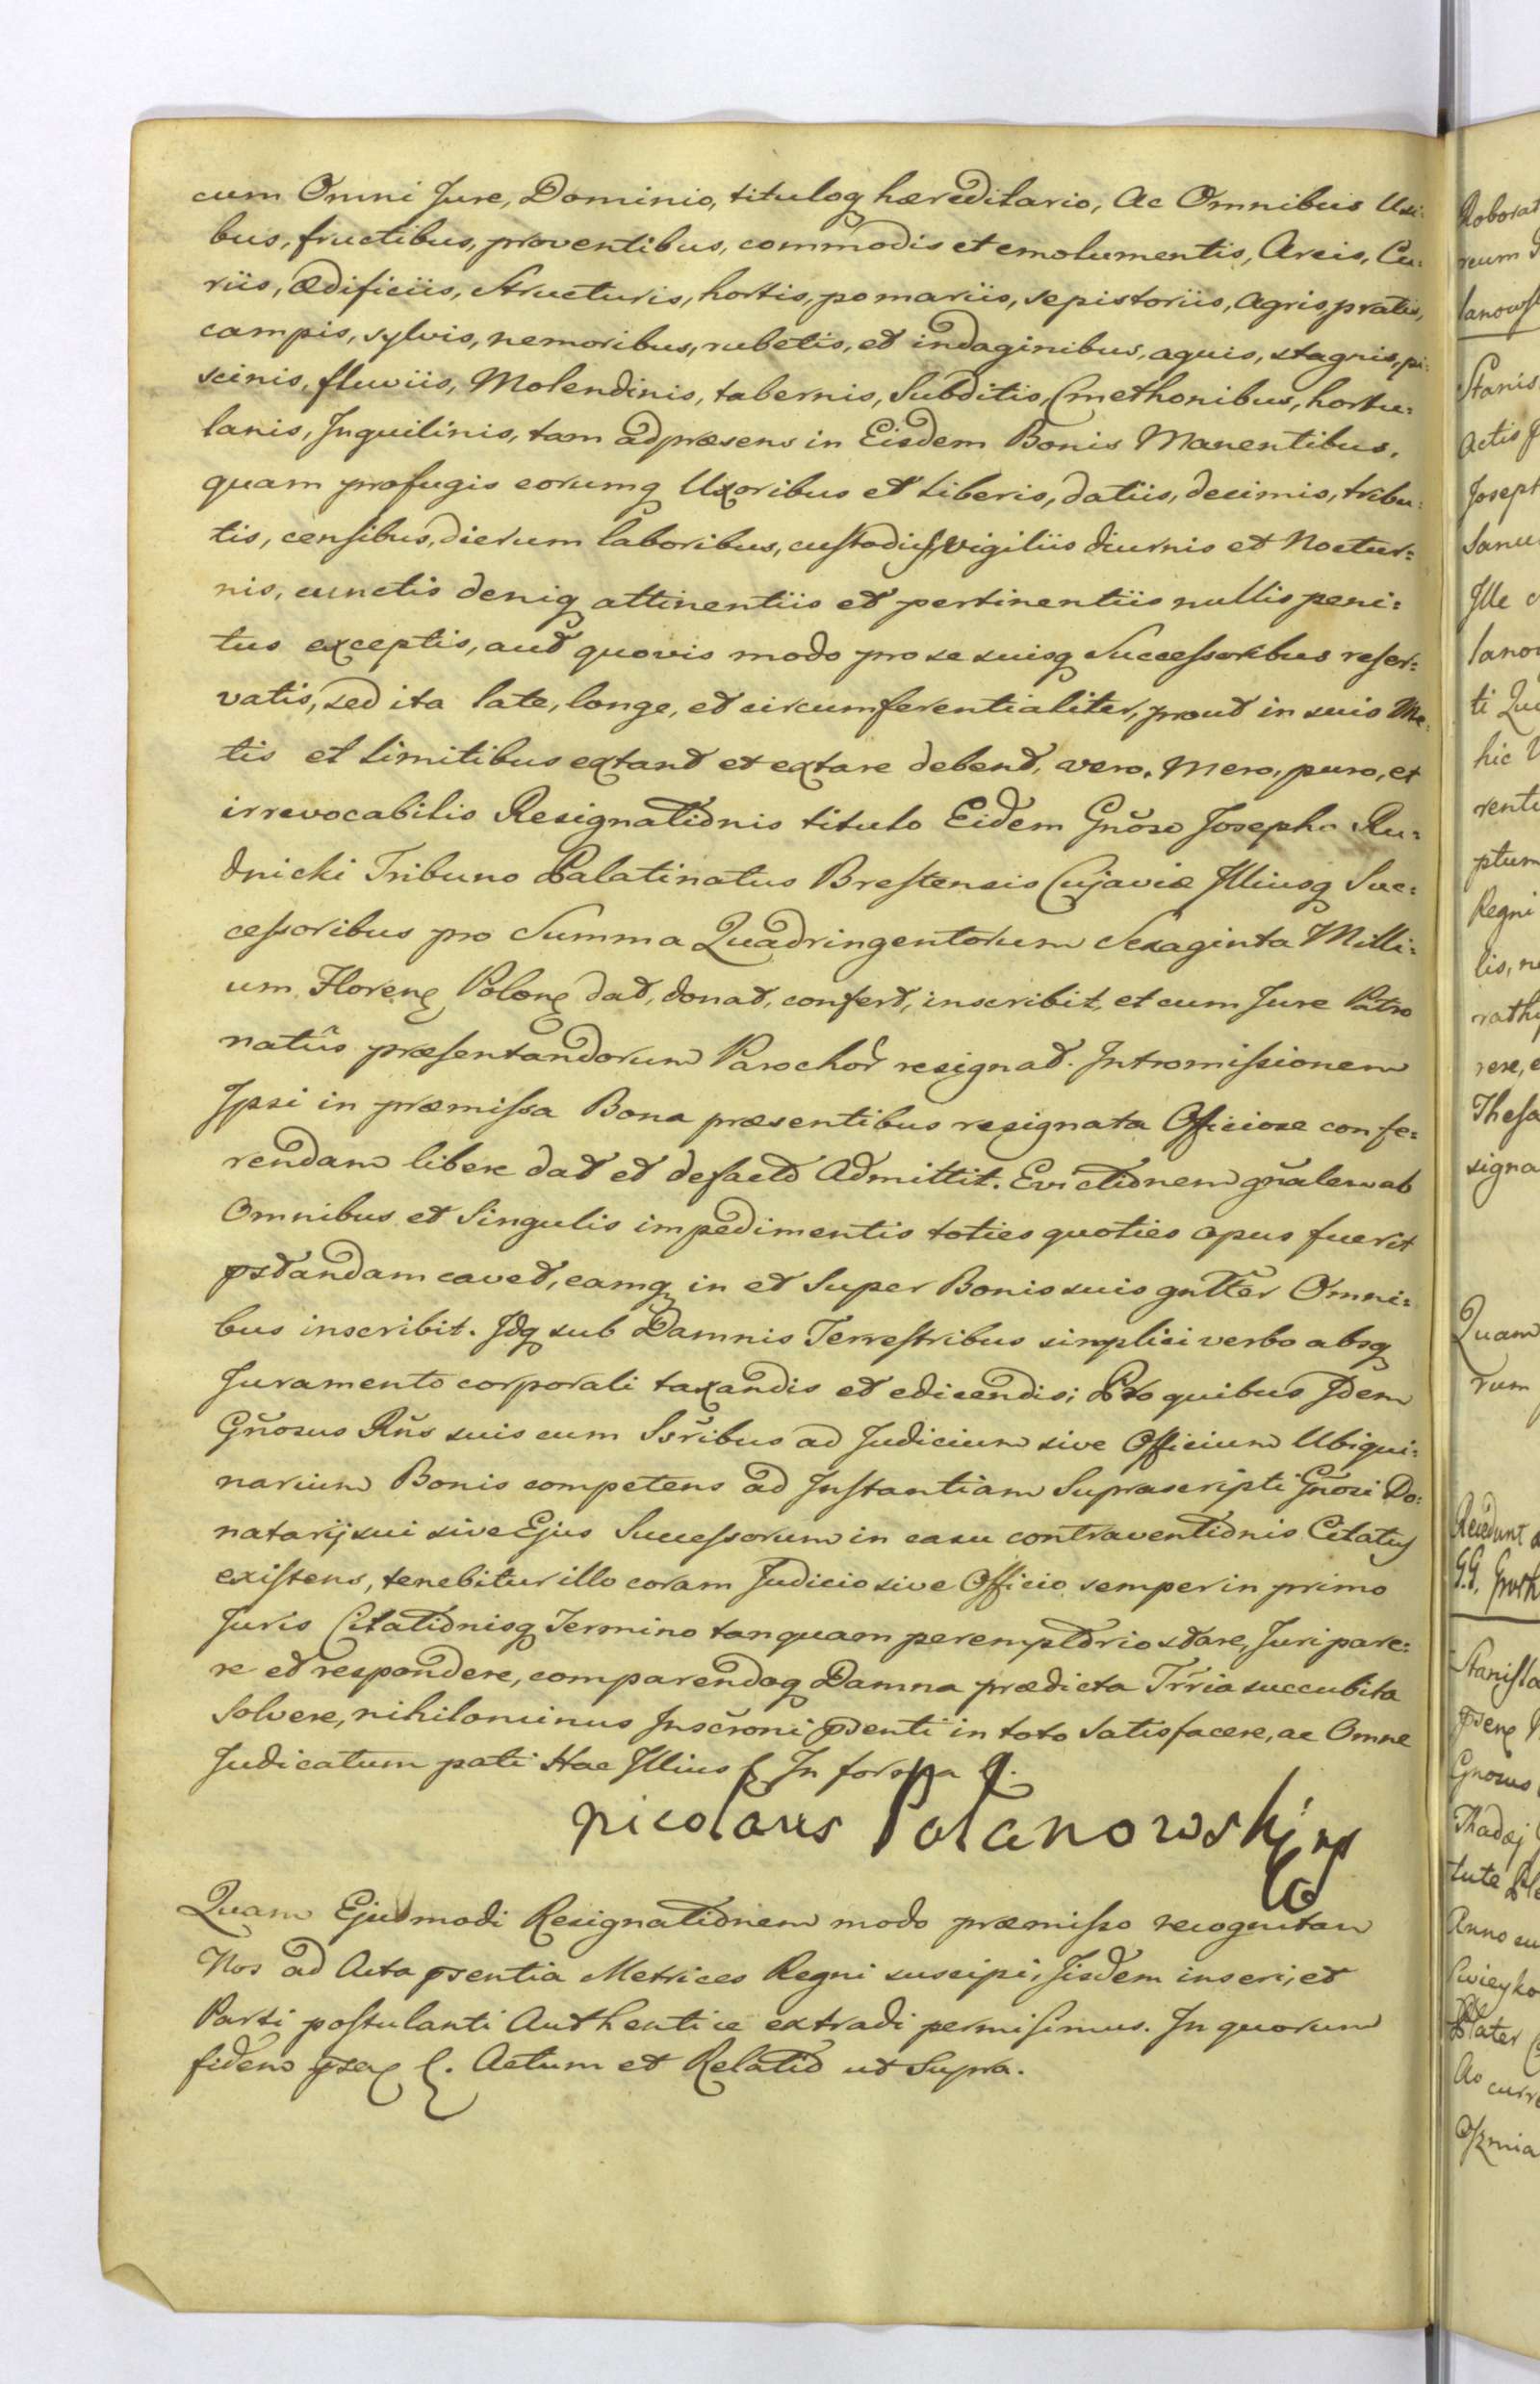 cum Omni Jure, Dominio, tituloq hæreditario, Ac Omnibus Usi:
bus, fructibus, proventibus, commodis et emolumentis, Areis, Cu:
riis, Ædificiis, Structuris, hortis, pomariis, sepistoriis, Agris, pratis,
campis, sylvis, nemoribus, rubetis, et indaginibus, aquis, stagnis, pi:
scinis, fluviis, Molendinis, tabernis, Subditis, Cmethonibus, hortu:
lanis, Inquilinis, tam ad præsens in Eisdem Bonis Manentibus,
quam profugis eorumq Uxoribus et Liberis, datiis, decimis, tribu:
tis, censibus, dierum laboribus, custodiis, Vigiliis diurnis et Noctur:
nis, cunctis deniq attinentiis et pertinentiis nullis peni:
tus exceptis, aut quovis modo pro se suisq Successoribus reser:
vatis, sed ita late, longe, et circumferentialiter, prout in suis Me:
tis et Limitibus extant et extare debent, vero, Mero, puro, et
irrevocabilis Resignationis titulo Eidem Gnõso Josepho Ru:
dnicki Tribuno Palatinatus Brestensis Cujaviæ Illiusq Suc:
cessoribus pro Summa Quadringentorum Sexaginta Milli:
um Floren Polon dat, donat, confert, inscribit, et cum Jure Patro
natûs præsentandorum Parochor resignat. Intromissionem
Ipsi in præmissa Bona præsentibus resignata Officiose confe:
rendam libere dat et defacto Admittit. Evictionem gñalem ab
Omnibus et Singulis impedimentis toties quoties opus fuerit
pstandam cavet, eamq in et Super Bonis suis gnlter Omni:
bus inscribit. Idq sub Damnis Terrestribus simplici verbo absq
Juramento corporali taxandis et edicendis; Pro quibus Idem
Gñosus Rñs suis cum Ssribus ad Judicium sive Officium Ubiqui:
narium Bonis competens ad Instantiam Suprascripti Gñosi Do:
natarij sui sive Ejus Successorum in casu contraventionis Citatus
existens, tenebitur illo coram Judicio sive Officio semper in primo
Juris Citationisq Termino tanquam peremptorio stare, Juri pare:
re et respondere, comparendoq Damna prædicta Trria succubita
Solvere, nihilominus Inscroni psenti in toto Satisfacere, ac Omne
Judicatum pati Hac Illius In forma
Nicolaus Polanowski mp
Quam Ejusmodi Resignationem modo præmisso recognitam
Nos ad Acta psentia Metrices Regni suscipi, Iisdem inseri, et
Parti postulanti Authentice extradi permisimus. In quorum
fidem Actum et Relatio ut Supra.
Roborat
reum
lanows
Stanis
Actis
Joseph
Sanu
Ille
lano
ti
hic
rent
ptum
Regni
lis,
rath
rere,
Thesa
signa
Quam
rum
G.G.
Stanisla
Gnosus
Thadæj
tute
Anno
Plater
Ao curr